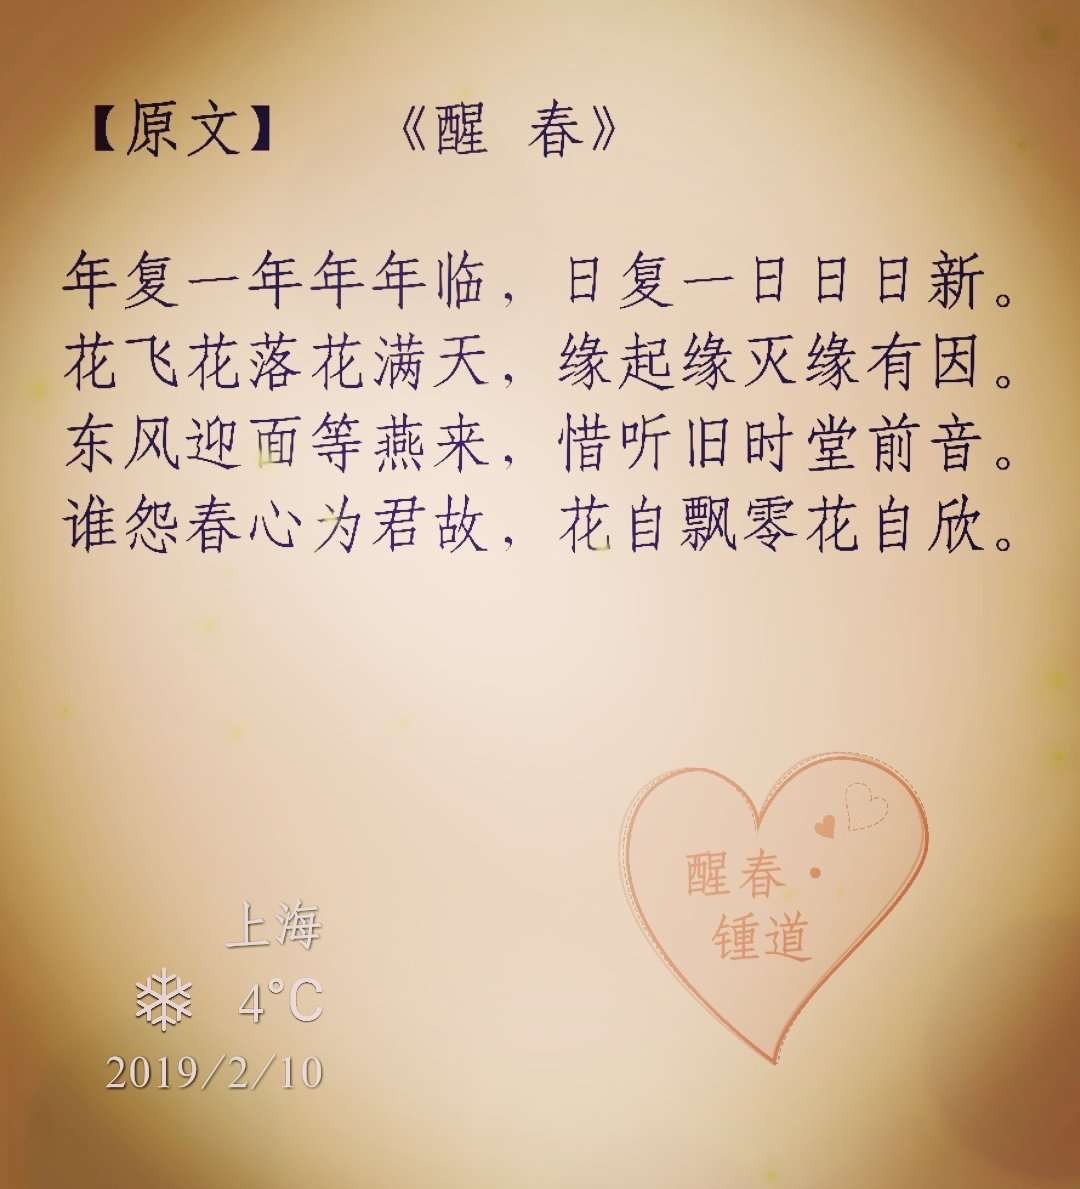 【原文】 《醒 春》
年复一年年年临，日复一日日日新。
花飞花落花满天，缘起缘灭缘有因。
东风迎面等燕来，惜听旧时堂前音。
谁怨春心为君故，花自飘零花自欣。
醒春·
锺道
上海
4°C
2019/2/10